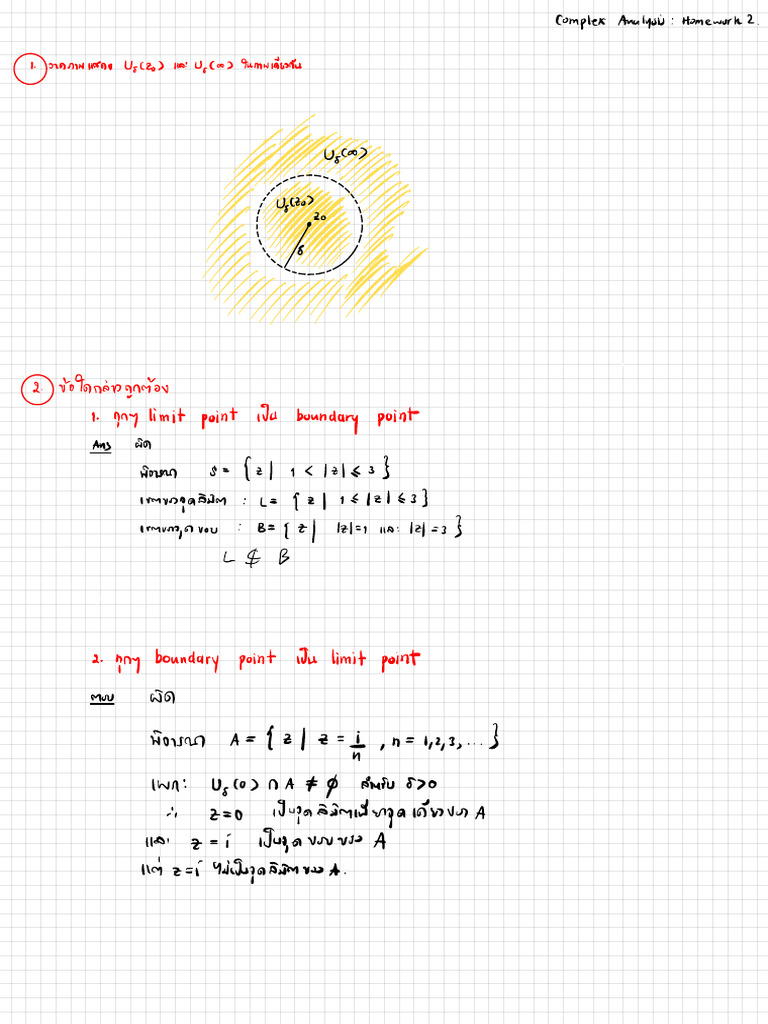 Complex Analysis : Homework 2.
1. วาดภาพแสดง U_δ(z₀) และ U_δ(∞) ในภาพเดียวกัน
U_δ(∞)
U_δ(z₀)
z₀
δ
2. ข้อใดกล่าวถูกต้อง
1. ทุกๆ limit point เป็น boundary point
Ans ผิด
พิจารณา S = { z | 1 < |z| ≤ 3 }
เซตของจุดลิมิต : L = { z | 1 ≤ |z| ≤ 3 }
เซตของจุดขอบ : B = { z | |z| = 1 และ |z| = 3 }
L ⊄ B
2. ทุกๆ boundary point เป็น limit point
ตอบ ผิด
พิจารณา A = { z | z = i/n , n = 1, 2, 3, ... }
เพราะ U_δ(0) ∩ A ≠ ∅ สำหรับ δ > 0
∴ z = 0 เป็นจุดลิมิตเพียงจุดเดียวของ A
และ z = i เป็นจุดขอบของ A
แต่ z = i ไม่เป็นจุดลิมิตของ A.